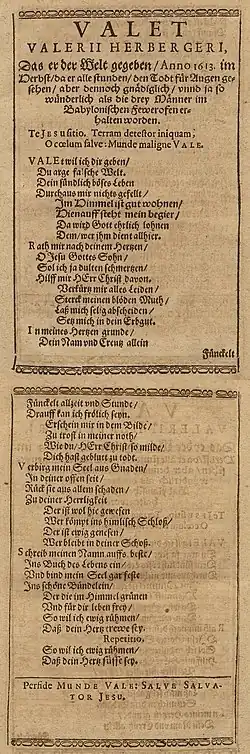 VALET
VALERII HERBERGERI,
Das er der Welt gegeben / Anno 1613. im
Herbst / da er alle stunden / den Todt für Augen ge-
sehen / aber dennoch gnädiglich / vnnd ja so
wünderlich als die drey Männer im
Babylonischen Fewerofen er-
halten worden.
Te JESU sitio. Terram detestor iniquam,
O cœlum salve: Munde maligne VALE.
VALET wil ich dir geben /
Du arge falsche Welt.
Dein sündlich böses Leben
Durchaus mir nichts gefellt /
Im Himmel ist gut wohnen /
Hienauff steht mein begier /
Da wird Gott ehrlich lohnen
Dem / wer ihm dient allhier.
Rath mir nach deinem Hertzen /
O Jesu Gottes Sohn /
Sol ich ja dulten schmertzen /
Hilff mir HErr Christ davon.
Verkürtz mir alles Leiden /
Sterck meinen blöden Muth /
Laß mich selig abscheiden /
Setz mich in dein Erbgut.
In meines Hertzen grunde /
Dein Nam vnd Creutz allein
Fünckelt
Fünckelt allzeit vnd Stunde /
Drauff kan ich frölich seyn.
Erschein mir in dem Bilde /
Zu trost in meiner noth /
Wie du / HErr Christ so milde /
Dich hast geblut zu todt.
Verbirg mein Seel aus Gnaden /
In deiner offen seit /
Rück sie aus allem schaden /
Zu deiner Herrligkeit
Der ist wol hie gewesen
Wer kömpt ins himlisch Schloß /
Der ist ewig genesen /
Wer bleibt in deiner Schoß.
Schreib meinen Namn auffs beste /
Ins Buch des Lebens ein /
Vnd bind mein Seel gar feste
Ins schöne Bündelein /
Der die im Himmel grünen
Vnd für dir leben frey /
So wil ich ewig rühmen /
Daß dein Hertz trewe sey.
Repetitio.
So wil ich ewig rühmen /
Daß dein Hertz süsse sey.
Perfide MUNDE VALE: SALVE SALVA-
TOR JESU.